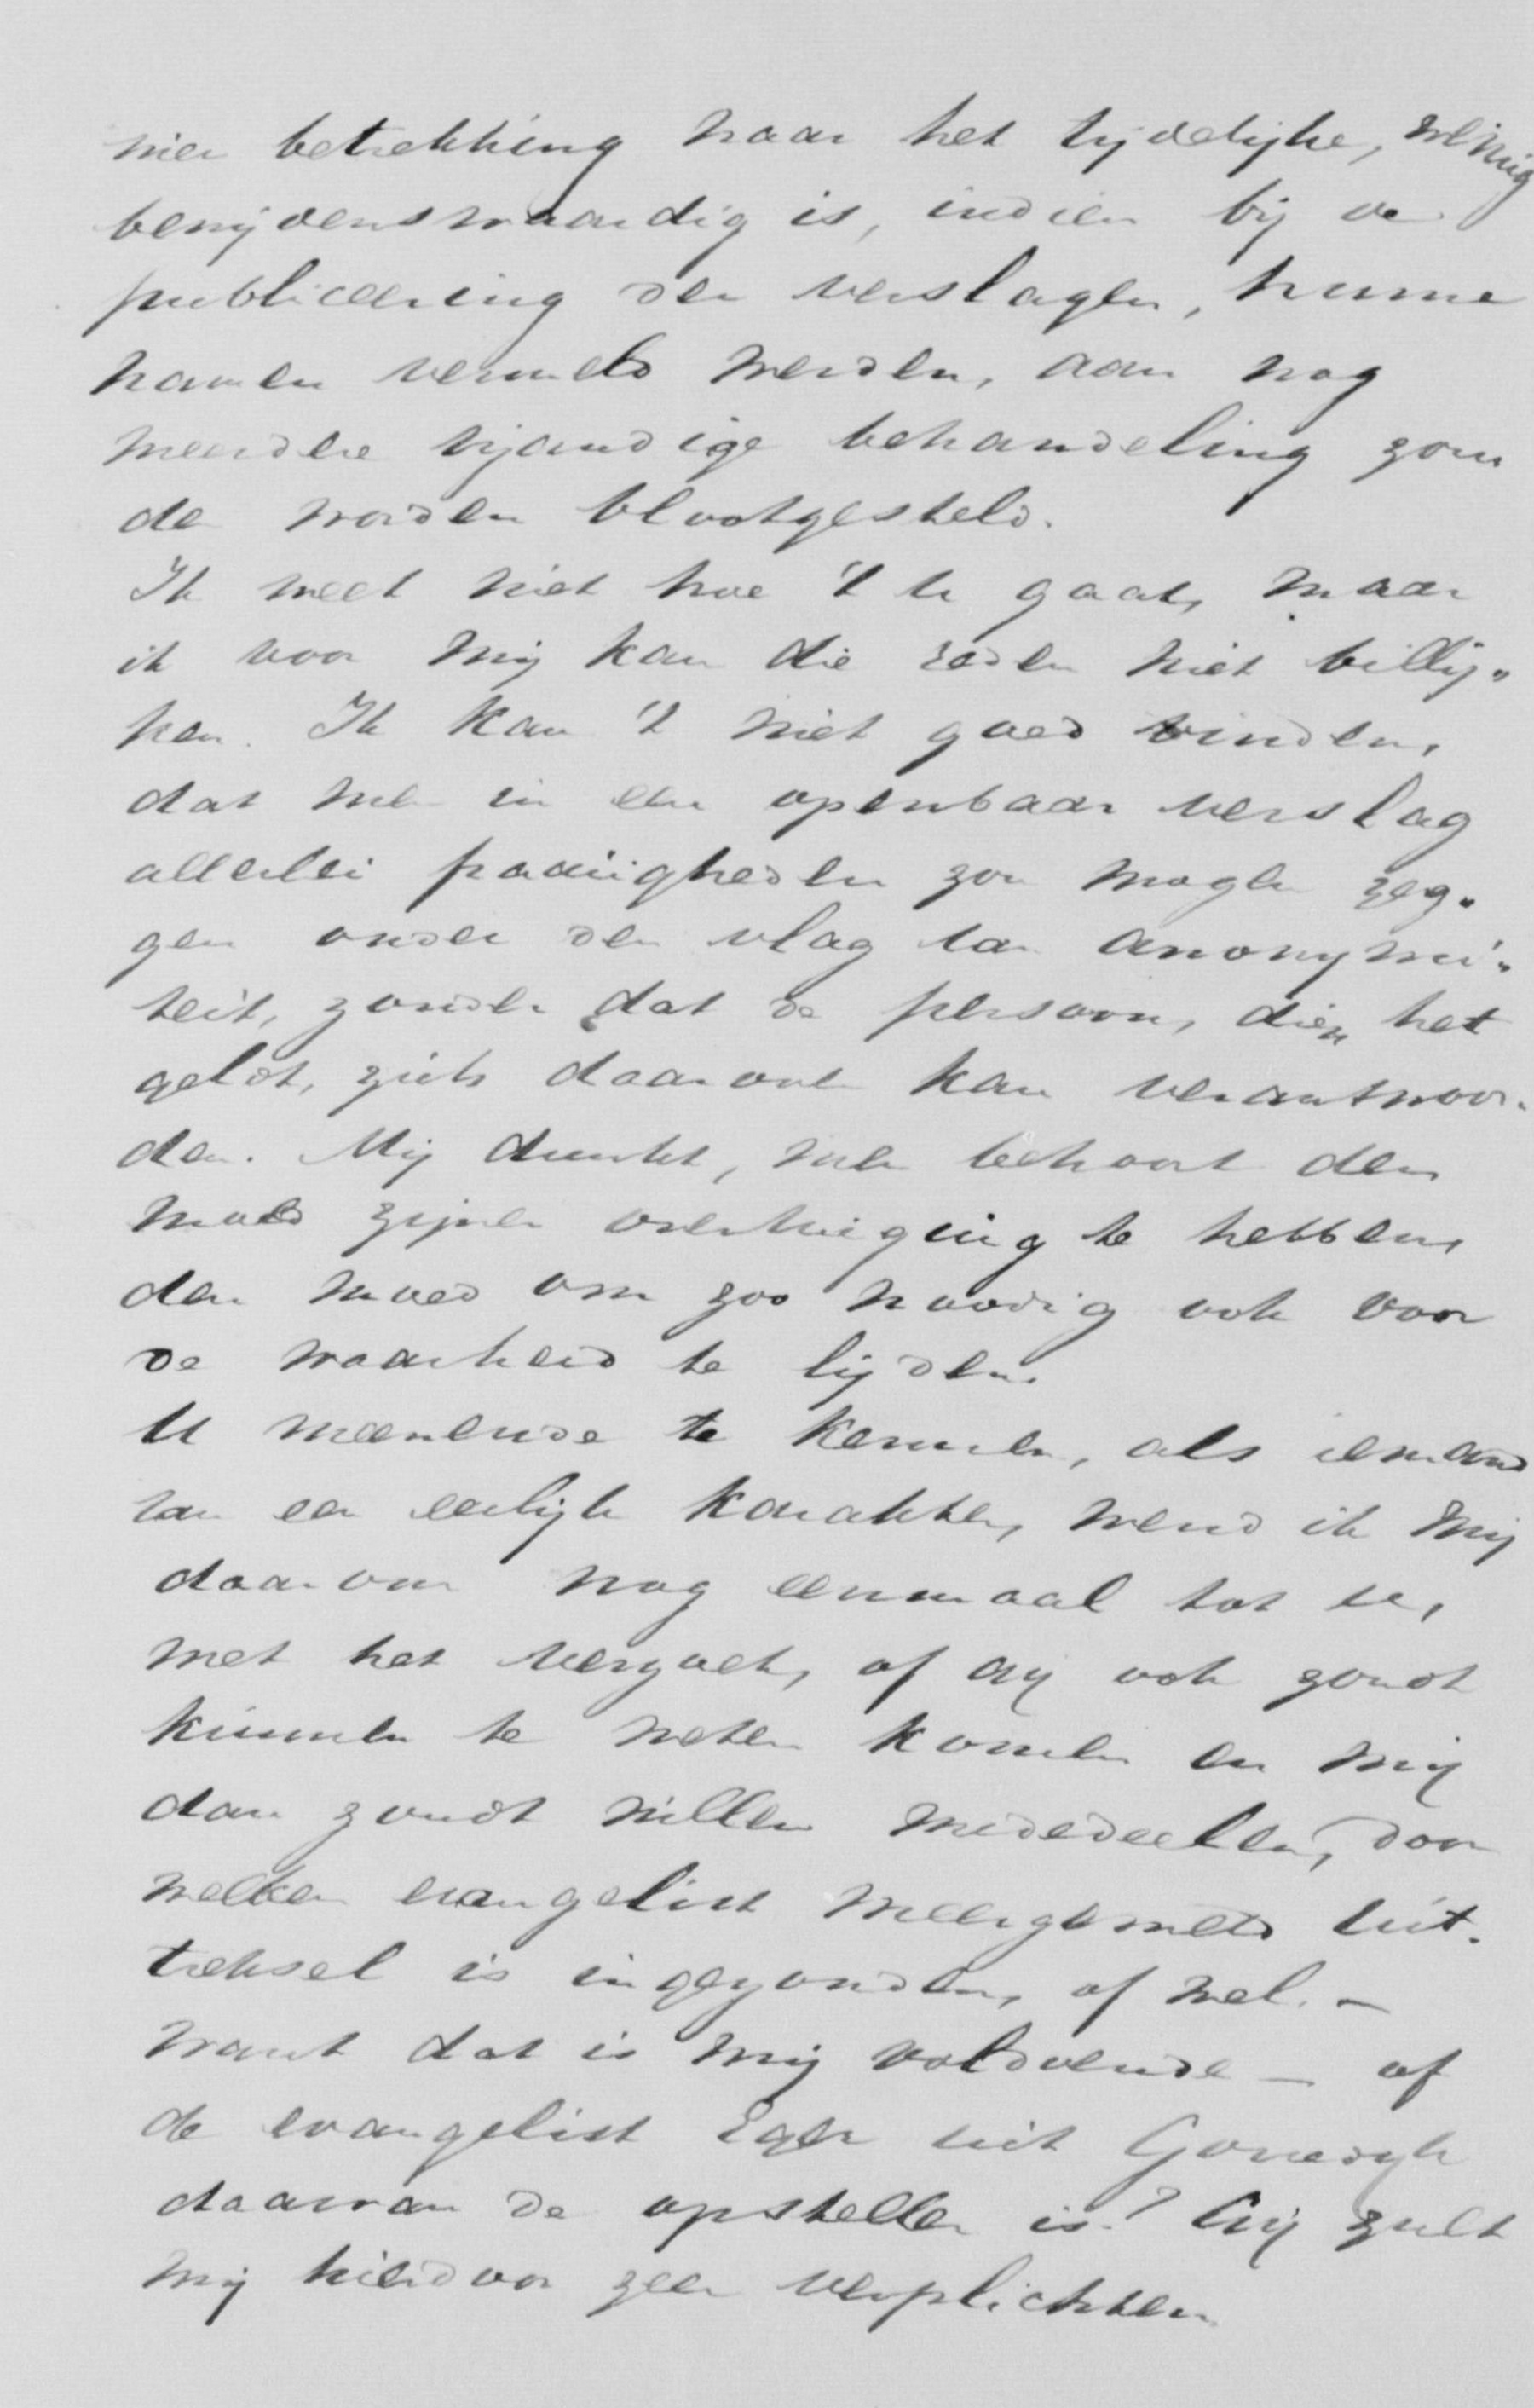 wier betrekking naar het tijdelijke, weinig
benijdenswaardig is, indien bij de
publiceering der verslagen, hunne
namen vermeld werden, aan nog
meerdere vijandige behandeling zou
de worden blootgesteld.
Ik weet niet hoe 't U gaat, maar
ik voor mij kan die reden niet billij„
ken. Ik kan 't niet goed vinden,
dat men in een openbaar verslag
allerlei fraaiigheden zou mogen zeg„
gen onder den vlag van anonymi„
teit, zonder dat de persoon, dien het
geldt, zich daarover kan verantwoor„
den. Mij dunkt, men behoort den
moed zijner overtuiging te hebben,
den moed om zoo noodig ook voor
de waarheid te lijden.
U meenende te kennen, als iemand
van een eerlijk karakter, wend ik mij
daarom nog eenmaal tot U,
met het verzoek, of Gij ook zoudt
kunnen te weten komen en mij
dan zoudt willen mededeelen, door
welken evangelist meergemeld uit„
treksel is ingezonden, of wel. –
want dat is mij voldoende – of
de evangelist Eger uit Gorredijk
daarvan de opsteller is? Gij zult
mij hierdoor zeer verplichten